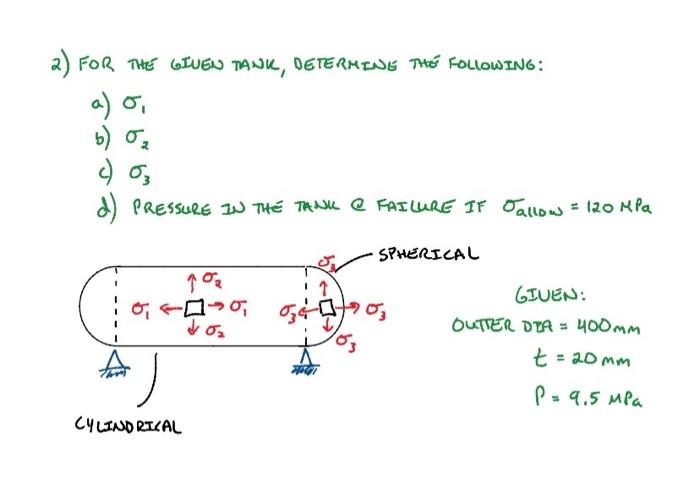 2) FOR THE GIVEN TANK, DETERMINE THE FOLLOWING:
a) σ₁
b) σ₂
c) σ₃
d) PRESSURE IN THE TANK @ FAILURE IF σallow = 120 MPa
SPHERICAL
σ₃
σ₂
σ₁ σ₁ σ₃ σ₃
σ₂
σ₃
CYLINDRICAL
GIVEN:
OUTTER DIA = 400mm
t = 20mm
P = 9.5 MPa